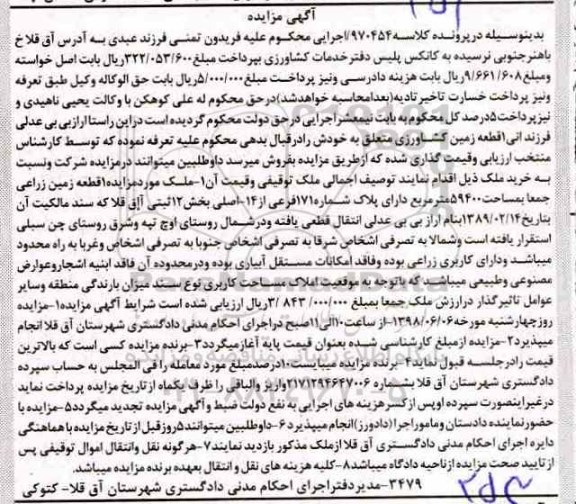 آگهی مزایده
بدینوسیله درپرونده کلاسه۹۷۰۴۵۴/اجرایی محکوم علیه فریدون تمنی فرزند عبدی به آدرس آق قلا خ
باهنرجنوبی نرسیده به کانکس پلیس دفترخدمات کشاورزی بپرداخت مبلغ۳۲۲/۰۵۳/۶۰۰ریال بابت اصل خواسته
ومبلغ۹/۶۶۱/۶۰۸ریال بابت هزینه دادرسی ونیز پرداخت مبلغ۵/۰۰۰/۰۰۰ریال بابت حق الوکاله وکیل طبق تعرفه
ونیز پرداخت خسارت تاخیرتادیه(بعدامحاسبه خواهدشد)درحق محکوم له علی کوهکن با وکالت یحیی ناهیدی و
نیزپرداخت۵درصد کل محکوم به بابت نیمعشراجرایی درحق دولت محکوم گردیده است دراین راستا ارازبی بی عدلی
فرزند انی۱قطعه زمین کشاورزی متعلق به خودش رادرقبال بدهی محکوم علیه تعرفه نموده که توسط کارشناس
منتخب ارزیابی وقیمت گذاری شده که ازطریق مزایده بفروش میرسد داوطلبین میتوانند درمزایده شرکت ونسبت
به خرید ملک ذیل اقدام نمایند توصیف اجمالی ملک توقیفی وقیمت آن۱-ملک موردمزایده۱قطعه زمین زراعی
جمعا بمساحت۵۹۴۰۰مترمربع دارای پلاک شماره۱۷۱فرعی از۱۴-اصلی بخش۱۲ثبتی آق قلا که سند مالکیت آن
بتاریخ۱۳۸۹/۰۲/۱۴بنام اراز بی بی عدلی انتقال قطعی یافته ودرشمال روستای اوچ تپه وشرق روستای چن سبلی
استقرار یافته است وشمالا به تصرفی اشخاص شرقا به تصرفی اشخاص جنوبا به تصرفی اشخاص وغربا به راه محدود
میباشد ودارای کاربری زراعی بوده وفاقد امکانات مستقل آبیاری بوده ودرمحدوده آن فاقد ابنیه اشجاروعوارض
مصنوعی وطبیعی میباشد که باتوجه به موقعیت املاک مساحت کاربری نوع سند میزان بارندگی منطقه وسایر
عوامل تاثیرگذار درارزش ملک جمعا بمبلغ ۳/۸۴۳/۰۰۰/۰۰۰ریال ارزیابی شده است شرایط آگهی مزایده۱-مزایده
روزچهارشنبه مورخه۱۳۹۸/۰۶/۰۶-از ساعت۱۰الی۱۱صبح دراجرای احکام مدنی دادگستری شهرستان آق قلا انجام
میپذیرد۲-مزایده ازمبلغ کارشناسی شده بعنوان قیمت پایه آغازمیگردد۳-برنده مزایده کسی است که بالاترین
قیمت رادرجلسه قبول نماید۴-برنده مزایده میبایست۱۰درصدمبلغ مورد معامله را فی المجلس به حساب سپرده
دادگستری شهرستان آق قلا بشماره ۲۱۷۱۲۹۴۶۴۷۰۰۶واریز والباقی را ظرف یکماه از تاریخ مزایده پرداخت نماید
درغیراینصورت سپرده اوپس ازکسرهزینه های اجرایی به نفع دولت ضبط و آگهی مزایده تجدید میگردد۵-مزایده با
حضورنماینده دادستان وماموراجرا(دادورز)انجام میپذیرد ۶-داوطلبین میتوانند۵روزقبل ازتاریخ مزایده باهماهنگی
دایره اجرای احکام مدنی دادگستری آق قلا ازملک مذکور بازدید نمایند۷-هرگونه نقل وانتقال اموال توقیفی پس
از تایید صحت مزایده ازناحیه دادگاه میباشد۸-کلیه هزینه های نقل و انتقال بعهده برنده مزایده میباشد.
۳۴۷۹-مدیردفتراجرای احکام مدنی دادگستری شهرستان آق قلا- کتوکی